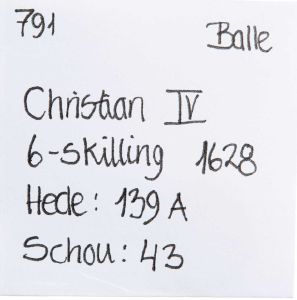 791 Balle
Christian IV
6-skilling 1628
Hede: 139 A
Schou: 43